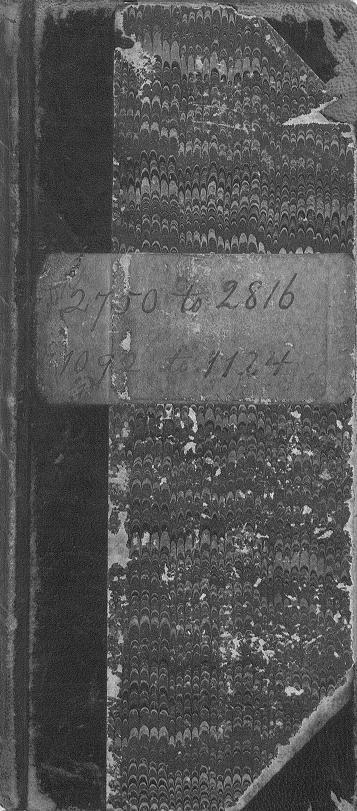 2750 to 2816
1092 to 1124